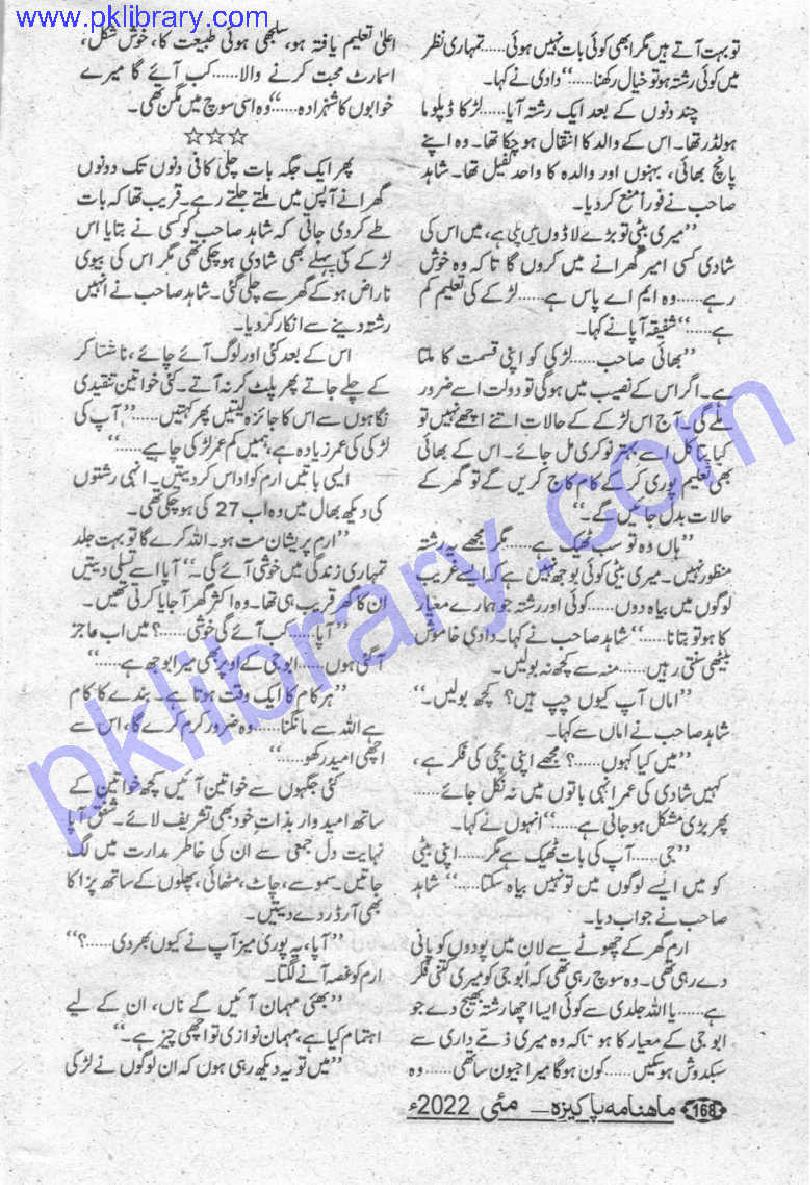 www.pklibrary.com
تو بہت آتے ہیں مگر ابھی کوئی بات نہیں ہوئی.....تمہاری نظر
میں کوئی رشتہ ہو تو خیال رکھنا.....‘‘ دادی نے کہا۔
چند دنوں کے بعد ایک رشتہ آیا......لڑکا ڈپلوما
ہولڈر تھا۔ اس کے والد کا انتقال ہو چکا تھا۔ وہ اپنے
پانچ بھائی، بہنوں اور والدہ کا واحد کفیل تھا۔ شاہد
صاحب نے فوراً منع کر دیا۔
’’میری بیٹی تو بڑے لاڈوں میں پلی ہے، میں اس کی
شادی کسی امیر گھرانے میں کروں گا تاکہ وہ خوش
رہے.....وہ ایم اے پاس ہے......لڑکے کی تعلیم کم
ہے.....‘‘ شفیقہ آپا نے کہا۔
’’بھائی صاحب......لڑکی کو اپنی قسمت کا ملتا
ہے۔ اگر اس کے نصیب میں ہوگی تو دولت اسے ضرور
ملے گی۔ آج اس لڑکے کے حالات اتنے اچھے نہیں تو
کیا پتا کل اسے بہتر نوکری مل جائے۔ اس کے بھائی
بھی تعلیم پوری کر کے کام کاج کریں گے تو گھر کے
حالات بدل جائیں گے۔‘‘
’’ہاں وہ تو سب ٹھیک ہے.....مگر مجھے یہ رشتہ
منظور نہیں۔ میری بیٹی کوئی بوجھ نہیں ہے کہ ایسے غریب
لوگوں میں بیاہ دوں......کوئی اور رشتہ جو ہمارے معیار
کا ہو تو بتانا.....‘‘ شاہد صاحب نے کہا۔ دادی خاموش
بیٹھی سنتی رہیں......منہ سے کچھ نہ بولیں۔
’’اماں آپ کیوں چپ ہیں؟ کچھ بولیں۔‘‘
شاہد صاحب نے اماں سے کہا۔
’’میں کیا کہوں.....؟ مجھے اپنی بچی کی فکر ہے،
کہیں شادی کی عمر انہی باتوں میں نہ نکل جائے.....
پھر بڑی مشکل ہو جاتی ہے.....‘‘ انہوں نے کہا۔
’’جی......آپ کی بات ٹھیک ہے مگر.....اپنی بیٹی
کو میں ایسے لوگوں میں تو نہیں بیاہ سکتا.....‘‘ شاہد
صاحب نے جواب دیا۔
ارم گھر کے چھوٹے سے لان میں پودوں کو پانی
دے رہی تھی۔ وہ سوچ رہی تھی کہ ابو جی کو میری کتنی فکر
ہے......یا اللہ جلدی سے کوئی ایسا اچھا رشتہ بھیج دے جو
ابو جی کے معیار کا ہو تاکہ وہ میری ذمے داری سے
سبکدوش ہو سکیں......کون ہوگا میرا جیون ساتھی.....وہ
اعلیٰ تعلیم یافتہ ہو، سلجھی ہوئی طبیعت کا، خوش شکل،
اسمارٹ محبت کرنے والا......کب آئے گا میرے
خوابوں کا شہزادہ.....‘‘ وہ اسی سوچ میں مگن تھی۔
☆☆☆
پھر ایک جگہ بات چلی کافی دنوں تک دونوں
گھرانے آپس میں ملتے جلتے رہے۔ قریب تھا کہ بات
طے کر دی جاتی کہ شاہد صاحب کو کسی نے بتایا اس
لڑکے کی پہلے بھی شادی ہو چکی تھی مگر اس کی بیوی
ناراض ہو کے گھر سے چلی گئی۔ شاہد صاحب نے انہیں
رشتہ دینے سے انکار کر دیا۔
اس کے بعد کئی اور لوگ آئے چائے، ناشتا کر
کے چلے جاتے پھر پلٹ کر نہ آتے۔ کئی خواتین تنقیدی
نگاہوں سے اس کا جائزہ لیتیں پھر کہتیں.....’’آپ کی
لڑکی کی عمر زیادہ ہے، ہمیں کم عمر لڑکی چاہیے.....‘‘
ایسی باتیں ارم کو اداس کر دیتیں۔ انہی رشتوں
کی دیکھ بھال میں وہ اب 27 کی ہو چکی تھی۔
’’ارم پریشان مت ہو۔ اللہ کرے گا تو بہت جلد
تمہاری زندگی میں خوشی آئے گی۔‘‘ آپا اسے تسلی دیتیں
ان کا گھر قریب ہی تھا۔ وہ اکثر گھر آ جایا کرتی تھیں۔
’’آپا......کب آئے گی خوشی.....؟ میں اب عاجز
آ گئی ہوں......ابو جی کے اوپر بھی میرا بوجھ ہے.....‘‘
’’ہر کام کا ایک وقت ہوتا ہے۔ بندے کا کام
ہے اللہ سے مانگنا......وہ ضرور کرم کرے گا، اس سے
اچھی امید رکھو.....‘‘
کئی جگہوں سے خواتین آئیں کچھ خواتین کے
ساتھ امیدوار بذاتِ خود بھی تشریف لائے۔ شفق آپا
نہایت دل جمعی سے ان کی خاطر مدارت میں لگ
جاتیں۔ سموسے، چاٹ، مٹھائی، پھلوں کے ساتھ پزا کا
بھی آرڈر دے دیتیں۔
’’آپا، یہ پوری میز آپ نے کیوں بھر دی.....؟‘‘
ارم کو غصہ آنے لگتا۔
’’بھئی مہمان آئیں گے ناں، ان کے لیے
اہتمام کیا ہے، مہمان نوازی تو اچھی چیز ہے۔‘‘
’’میں تو یہ دیکھ رہی ہوں کہ ان لوگوں نے لڑکی
168 ماہنامہ پاکیزہ ـــ مئی 2022ء
pklibrary.com